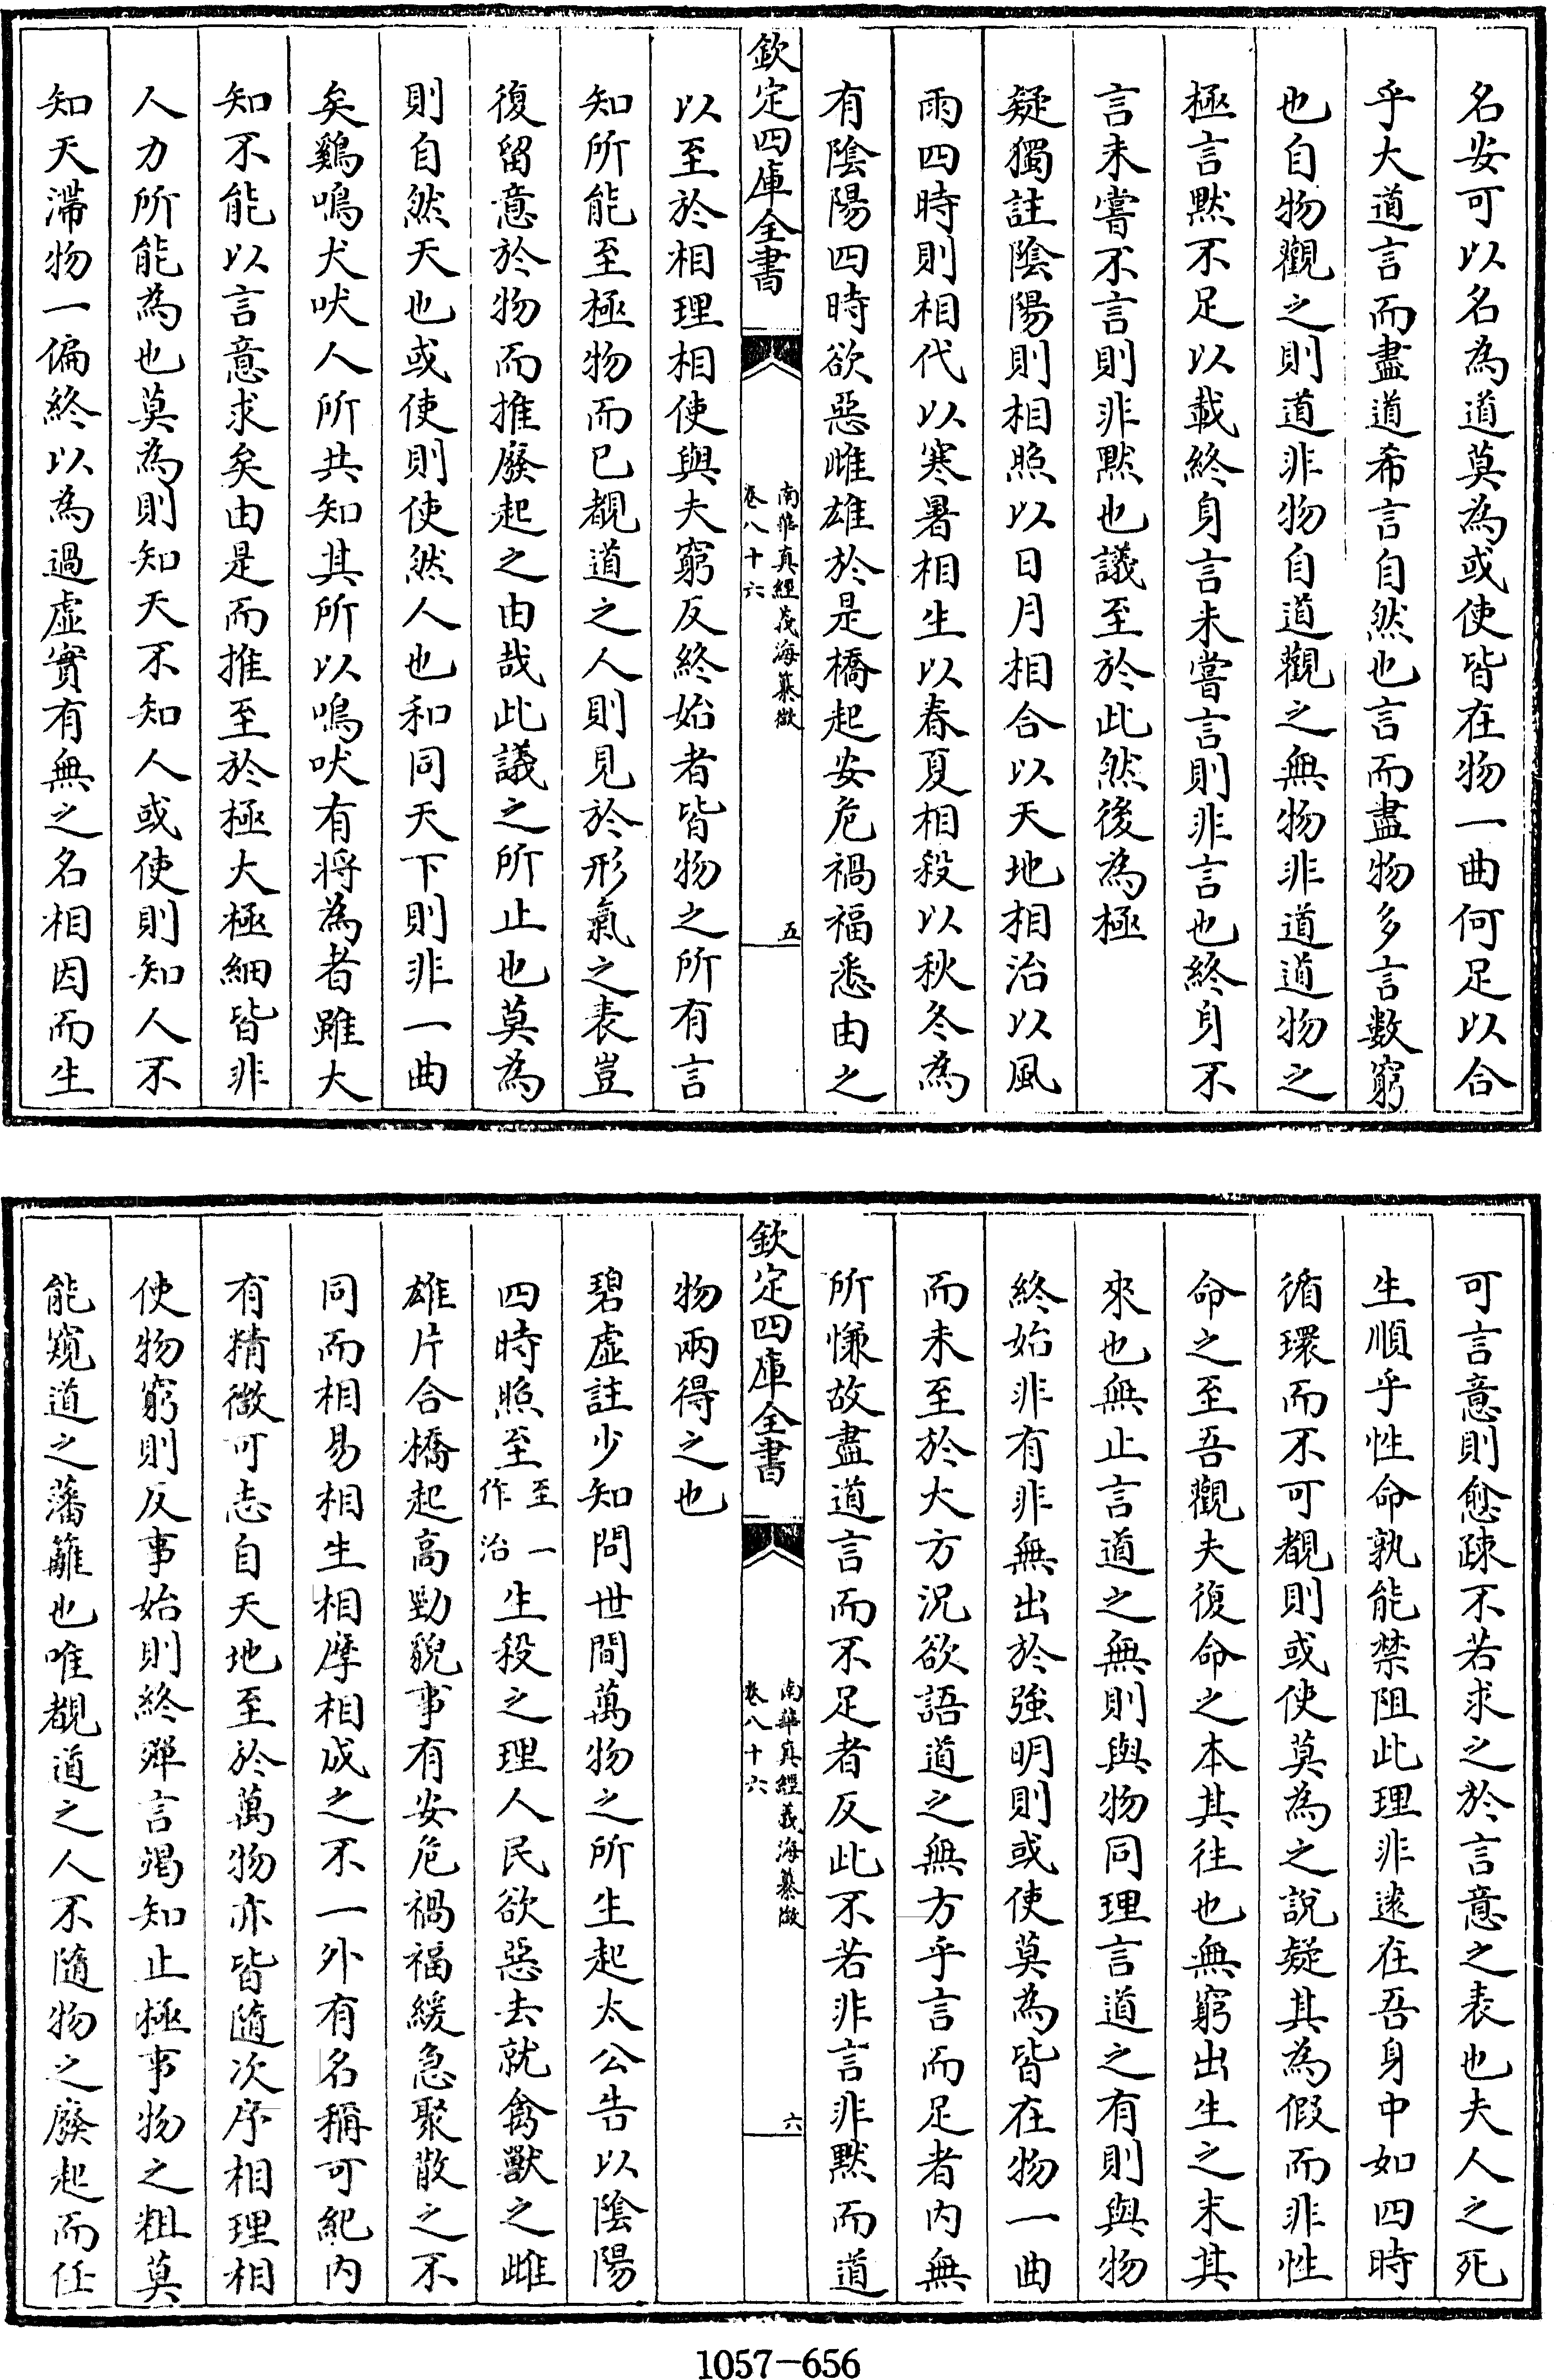 名安可以名為道莫為或使皆在物一曲何足以合
乎大道言而盡道希言自然也言而盡物多言數窮
也自物觀之則道非物自道觀之無物非道道物之
極言黙不足以載終身言未嘗言則非言也終身不
言未嘗不言則非黙也議至於此然後為極
疑獨註陰陽則相照以日月相合以天地相治以風
雨四時則相代以寒暑相生以春夏相殺以秋冬為
有陰陽四時欲惡雌雄於是橋起安危禍福悉由之
欽定四庫全書
南華真經義海纂微
卷八十六
五
以至於相理相使與夫窮反終始者皆物之所有言
知所能至極物而已覩道之人則見於形氣之表豈
復留意於物而推廢起之由哉此議之所止也莫為
則自然天也或使則使然人也和同天下則非一曲
矣鷄鳴犬吠人所共知其所以鳴吠有將為者雖大
知不能以言意求矣由是而推至於極大極細皆非
人力所能為也莫為則知天不知人或使則知人不
知天滯物一偏終以為過虛實有無之名相因而生
可言意則愈疎不若求之於言意之表也夫人之死
生順乎性命孰能禁阻此理非逺在吾身中如四時
循環而不可覩則或使莫為之說疑其為假而非性
命之至吾觀夫復命之本其往也無窮出生之末其
來也無止言道之無則與物同理言道之有則與物
終始非有非無出於強明則或使莫為皆在物一曲
而未至於大方況欲語道之無方乎言而足者内無
所慊故盡道言而不足者反此不若非言非黙而道
欽定四庫全書
南華真經義海纂微
卷八十六
六
物兩得之也
碧虛註少知問世間萬物之所生起太公告以陰陽
四時照至至一作治生殺之理人民欲惡去就禽獸之雌
雄片合橋起高勁貌事有安危禍福緩急聚散之不
同而相易相生相摩相成之不一外有名稱可紀内
有精微可志自天地至於萬物亦皆隨次序相理相
使物窮則反事始則終殫言竭知止極事物之粗莫
能窺道之藩籬也唯覩道之人不隨物之廢起而任
1057-656